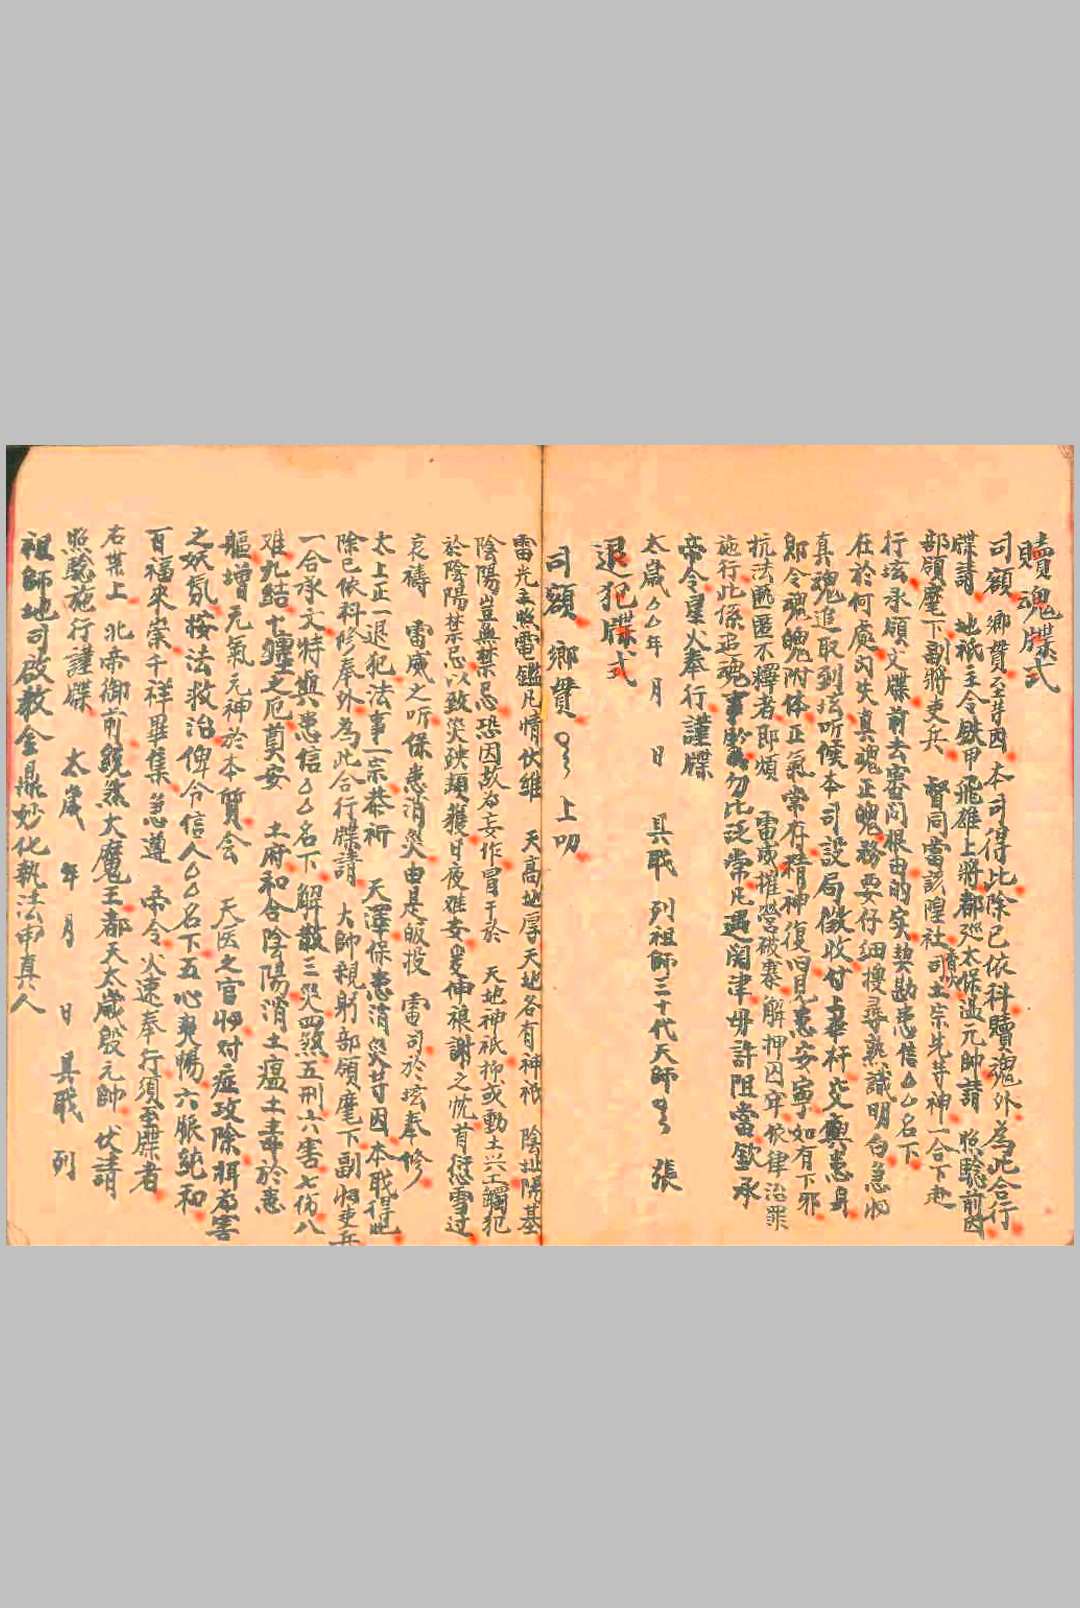 贖魂牒式
司額 鄉貫至茅因本司得此除已依科贖魂外為此合行
牒請 地祇主令鉄甲飛雄上將都巡太保溫元帥請 照驗前因
部領麾下副將吏兵 督同當該隍社司土宗先茅神一合下赴
行壇承領文牒前去審问根由的实契勘患信△△名下
在於何處向失真魂正魄務要仔細搜尋熟識明白急收
真魂追取到壇听候本司設局徵收付上華杆交與患身
即令魂魄附体正氣常存精神復旧見患安寧如有下邪
抗法匿匿不釋者即煩 雷或摧营破寨解押囚牢依律治罪
施行此係追魂事務勿比泛常凡遇関津毋許阻當欽承
帝令星火奉行謹牒
太歲△△年 月 日 具職 列祖師三十代天師 張
退犯牒式
司額 鄉貫 上叩
雷光主照電鑑凡情伏維 天高地厚天地各有神祇 陰地陽基
陰陽豈無禁忌恐因故為妄作冒干於 天地神祇抑或動土兴工觸犯
於陰陽禁忌以致災殃頻獲日夜难安爰伸禳謝之忱首愆雪过
哀禱 雷威之听保患消災由是皈投 雷司於壇奉修
太上正一退犯法事一宗恭祈 天澤保患消災茅因本職得此
除已依科修奉外為此合行牒請 大帥親躬部領麾下副將吏兵
一合承文特與患信△△名下解散三災四煞五刑六害七伤八
难九結十纏之厄奠安 土府和合陰陽消土瘟土毒於患
軀增元氣元神於本質会 天医之官将对症攻除祖為害
之妖氛按法救治俾令信人△△名下五心爽暢六脈純和
百福來崇千祥畢集急遵 帝令火速奉行須至牒者
右某上 北帝御前統煞大魔王都天太歲殷元帥 伏請
照驗施行謹牒 太歲 年 月 日 具職 列
祖師地司啟教金鼎妙化執法申真人